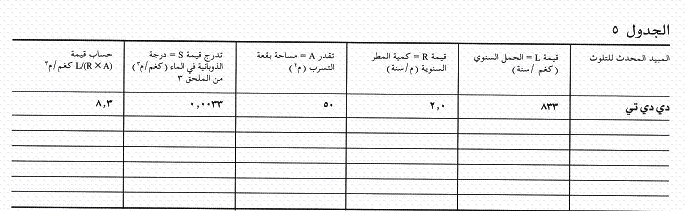 الجدول ٥
المبيد المحدث للتلوث
قيمة L = الحمل السنوي
(كغم /سنة)
قيمة R = كمية المطر
السنوية (م/سنة)
تقدر A = مساحة بقعة
التسرب (م٢)
تدرج قيمة S = درجة
الذوبانية في الماء (كغم/م٣)
من الملحق ٣
حساب قيمة
L/(R×A) كغم/م٣
دي دي تي
٨٣٣
٢,٠
٥٠
٠,٠٠٣٣
٨,٣